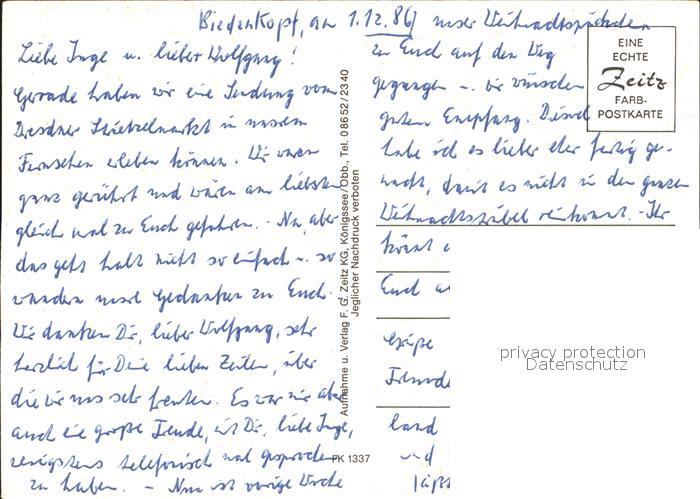 Biedenkopf, am 1.12.86
Liebe Inge u. lieber Wolfgang!
Gerade haben wir eine Sendung vom
Dresdner Striezelmarkt in unserem
Fernsehen erleben können. Wir waren
ganz gerührt und wären am liebsten
gleich mal zu Euch gefahren. - Na, aber
das geht halt nicht so einfach u. so
wandern unsere Gedanken zu Euch.
Wir danken Dir, lieber Wolfgang, sehr
herzlich für Deine lieben Zeilen, über
die wir uns sehr freuten. Es war mir aber
auch eine große Freude, mit Dir, liebe Inge,
wenigstens telefonisch mal gesprochen
zu haben. - Nun ist vorige Woche
unser Weihnachtspäckchen
zu Euch auf den Weg
gegangen -. wir wünschen
guten Empfang. Diesmal
habe ich es lieber eher fertig ge-
macht, damit es nicht in den ganzen
Weihnachtstrubel reinkommt. - Ihr
könnt
Euch
Grüße
Freude
land
und
EINE
ECHTE
Zeitz
FARB-
POSTKARTE
Aufnahme u. Verlag F. G. Zeitz KG, Königssee/Obb., Tel. 08652/2340
Jeglicher Nachdruck verboten
FK 1337
privacy protection
Datenschutz